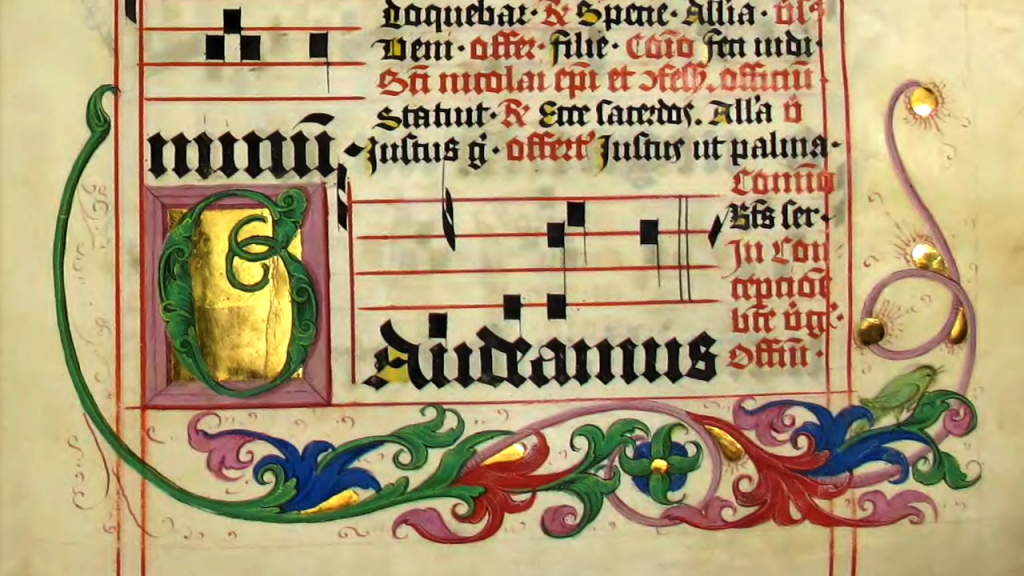 loquebar· R Specie· Allia· v̄s
Veni· offer· filie· Cōīo feci iudi·
Scī nicolai ep̄i et ɔfess. officiū
Statuit· R Ecce sacerdos. All'a v̄
minū, Justus g̃· offert' Justus ut palma·
Commō
Bt̄s ser
In Con
ceptiōe
bt̄e v̄g̃·
Offm̄·
Gaudeamus